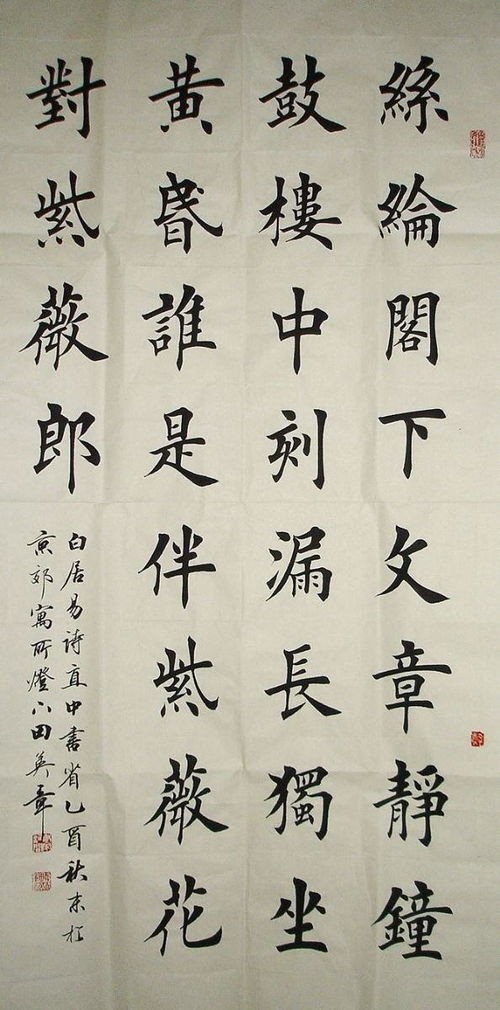 絲綸閣下文章靜鐘
鼓樓中刻漏長獨坐
黃昏誰是伴紫薇花
對紫薇郎
白居易詩直中書省乙酉秋末於
京郊寓所燈下田英章